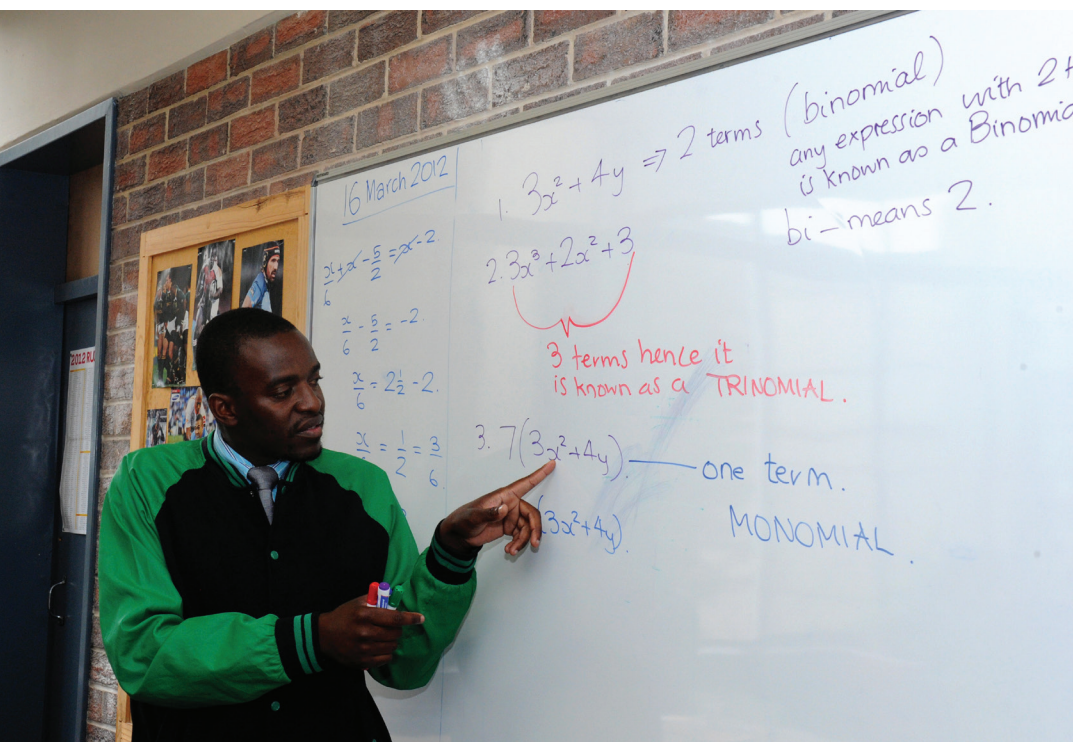 16 March 2012
x/6 + x - 5/2 = x - 2.
x/6 - 5/2 = -2.
x/6 = 2½ - 2.
x/6 = 1/2 = 3/6
1. 3x² + 4y ⇒ 2 terms (binomial)
any expression with 2
is known as a
bi - means 2.
2. 3x³ + 2x² + 3
3 terms hence it
is known as a TRINOMIAL.
3. 7(3x² + 4y). one term.
(3x² + 4y).
MONOMIAL.
2012